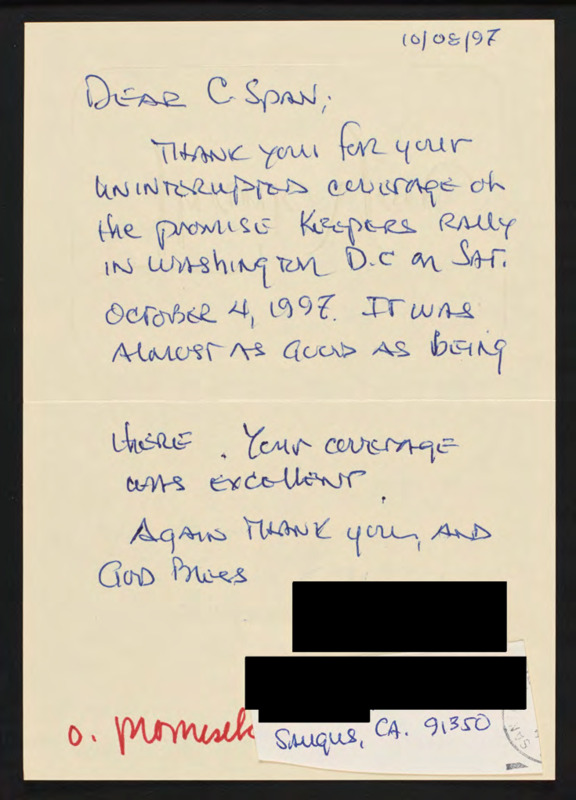 10/08/97
DEAR C-SPAN;
THANK you for your
UNINTERUPTED COVERAGE OF
the PROMISE KEEPERS RALLY
IN WASHINGTON D.C on SAT.
OCTOBER 4, 1997. IT WAS
ALMOST AS GOOD AS BEING
tHERE. Your COVERAGE
WAS EXCELLENT.
AGAIN THANK you, AND
GOD Bless
SAUGUS, CA. 91350
o. promisek
SAN